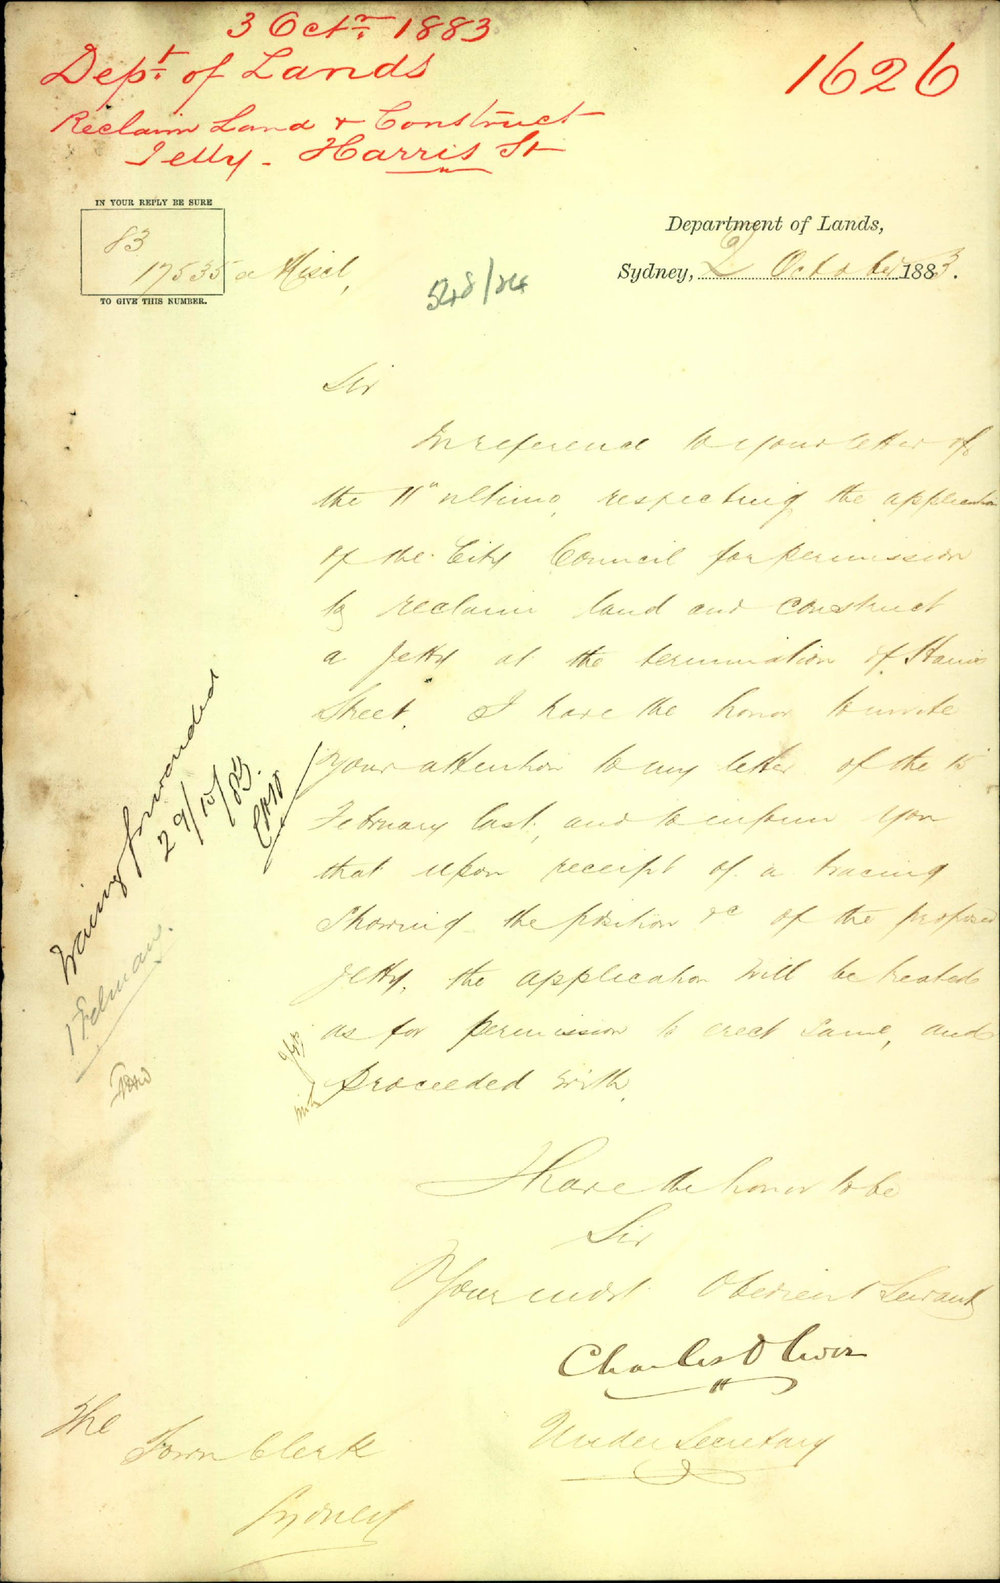 3 Octr. 1883
Dept. of Lands
1626
Reclaim Land & Construct
Jetty - Harris St
IN YOUR REPLY BE SURE
83
17535 a Miscl,
TO GIVE THIS NUMBER.
548/84
Department of Lands,
Sydney, 2 October 1883.
Sir
In reference to your letter of
the 11" ultimo, respecting the application
of the City Council for permission
to reclaim land and construct
a Jetty at the termination of Harris
Street, I have the honor to invite
your attention to my letter of the 15
February last, and to inform you
that upon receipt of a tracing
showing the position &c of the proposed
Jetty, the application will be treated
as for permission to erect same, and
proceeded with.
I have the honor to be
Sir
Your most Obedient Servant
Charles Oliver
Under Secretary
The
Town Clerk
Sydney
Tracing forwarded
29/10/83